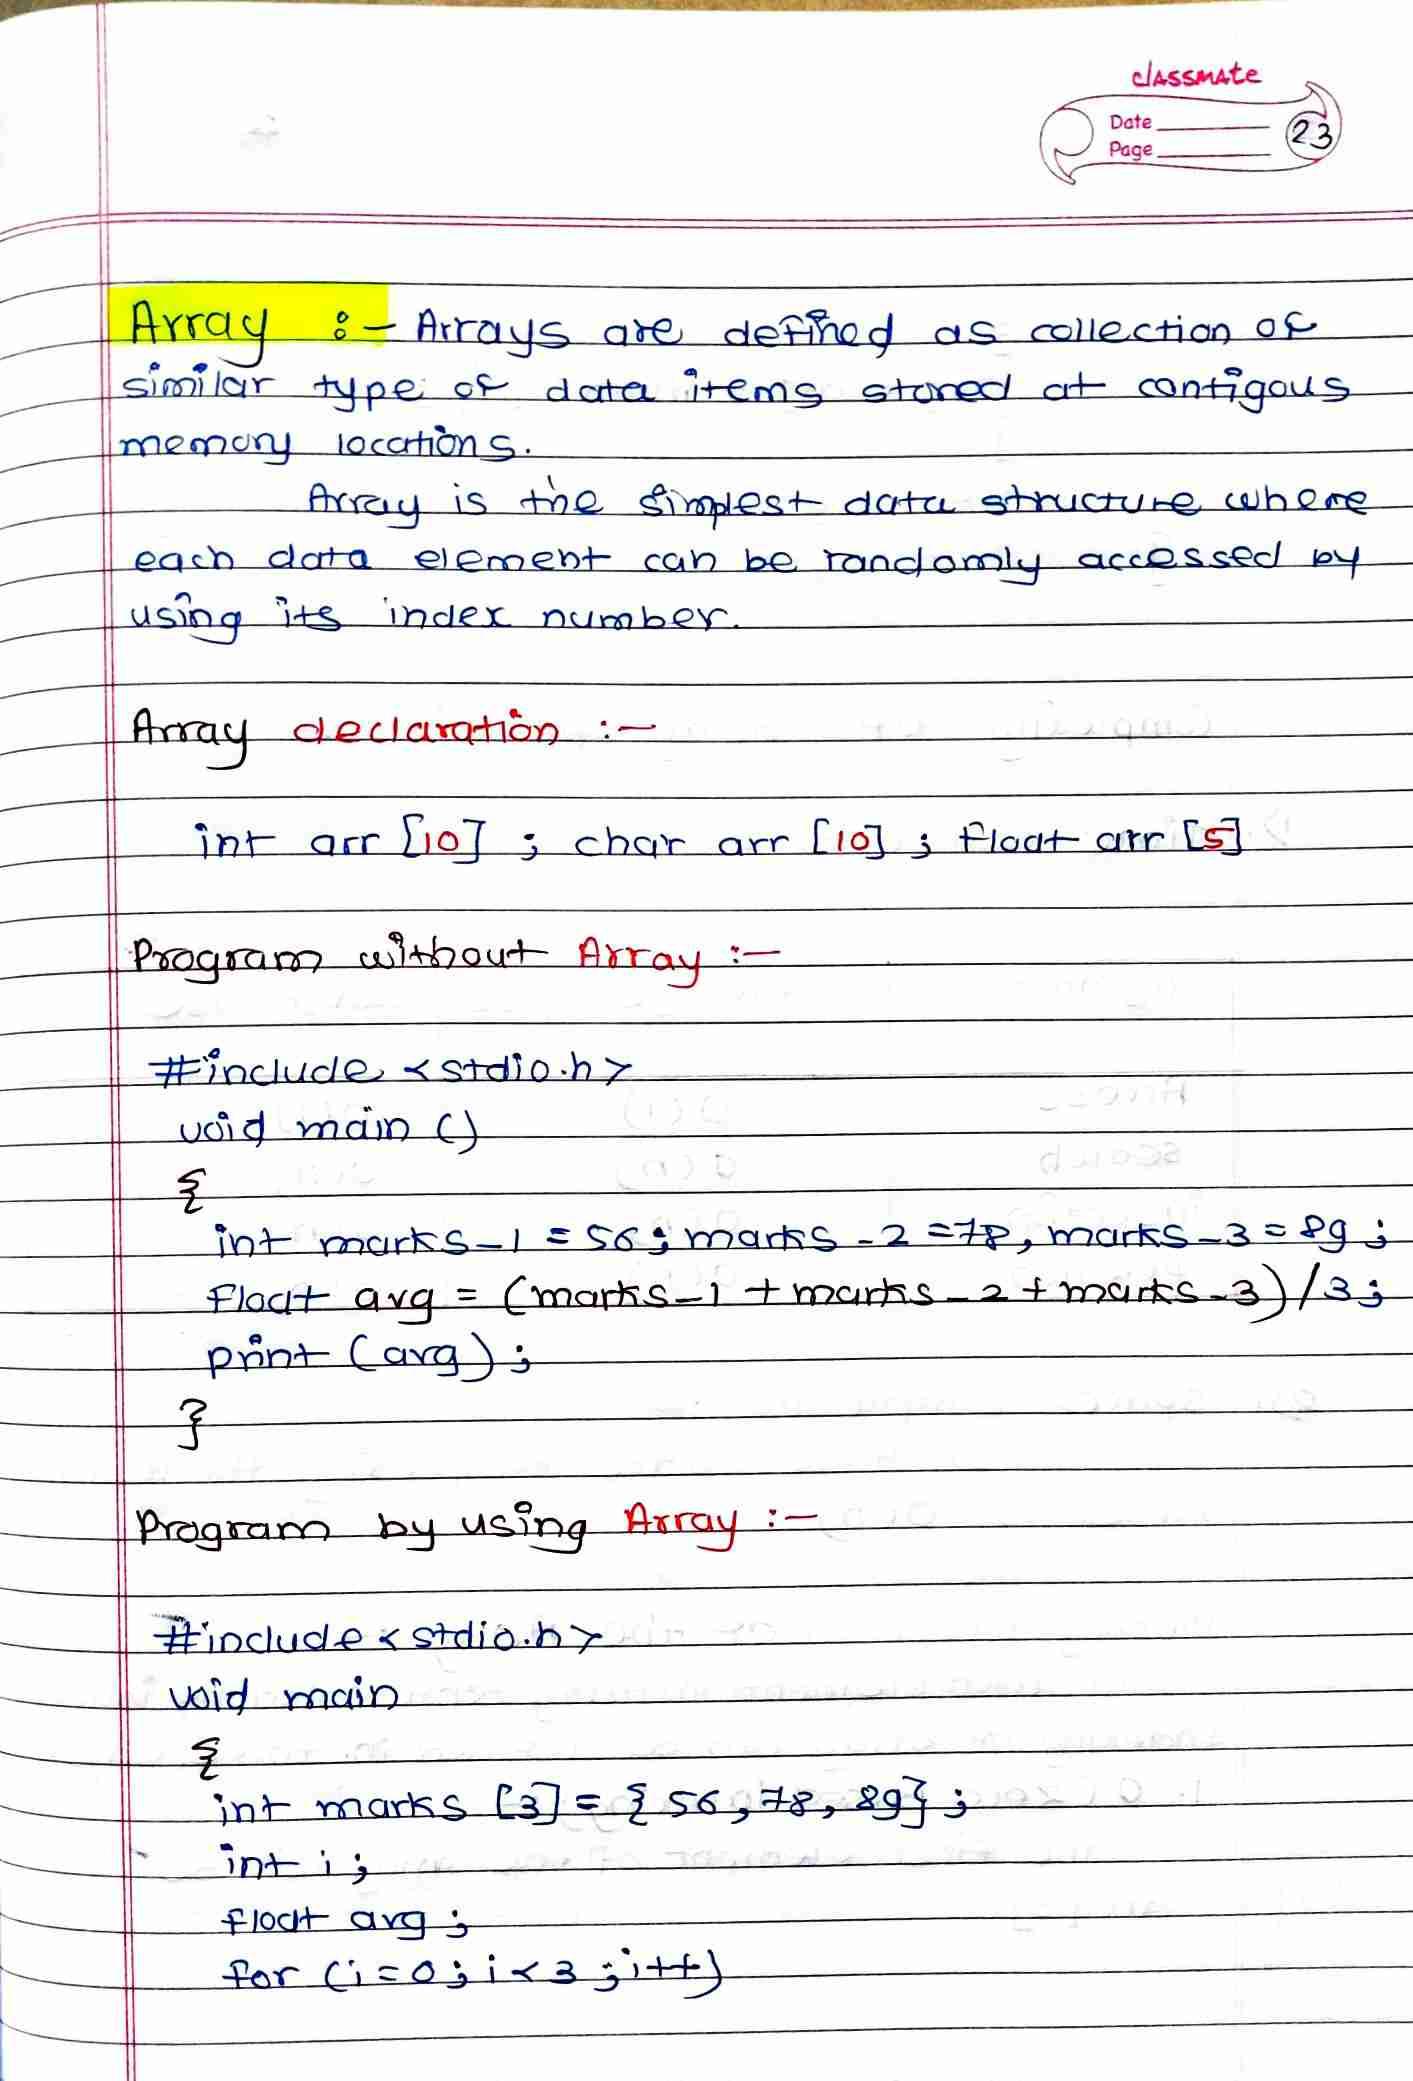 classmate
Date
Page
23
Array :- Arrays are defined as collection of
similar type of data items stored at contigous
memory locations.
Array is the simplest data structure where
each data element can be randomly accessed by
using its index number.
Array declaration :-
int arr [10] ; char arr [10] ; float arr [5]
Program without Array :-
#include <stdio.h>
void main ()
{
int marks-1 = 56; marks-2 = 78, marks-3 = 89;
float avg = (marks-1 + marks-2 + marks-3)/3;
print (avg);
}
Program by using Array :-
#include <stdio.h>
void main
{
int marks [3] = { 56, 78, 89};
int i;
float avg;
for (i=0; i<3; i++)